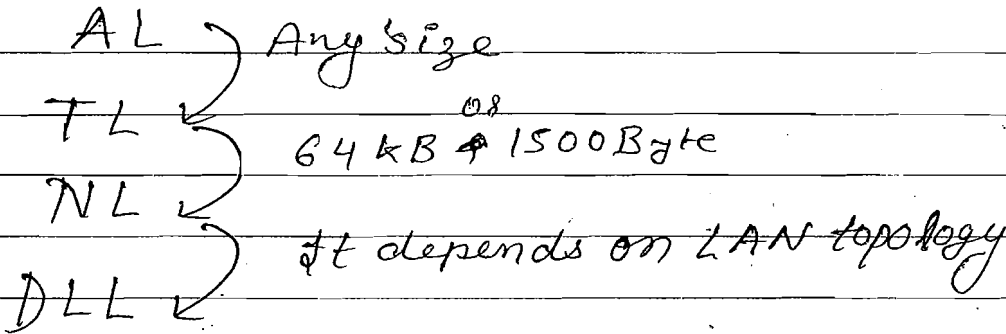 AL
Any size
TL
64 kB or 1500 Byte
NL
It depends on LAN topology
DLL